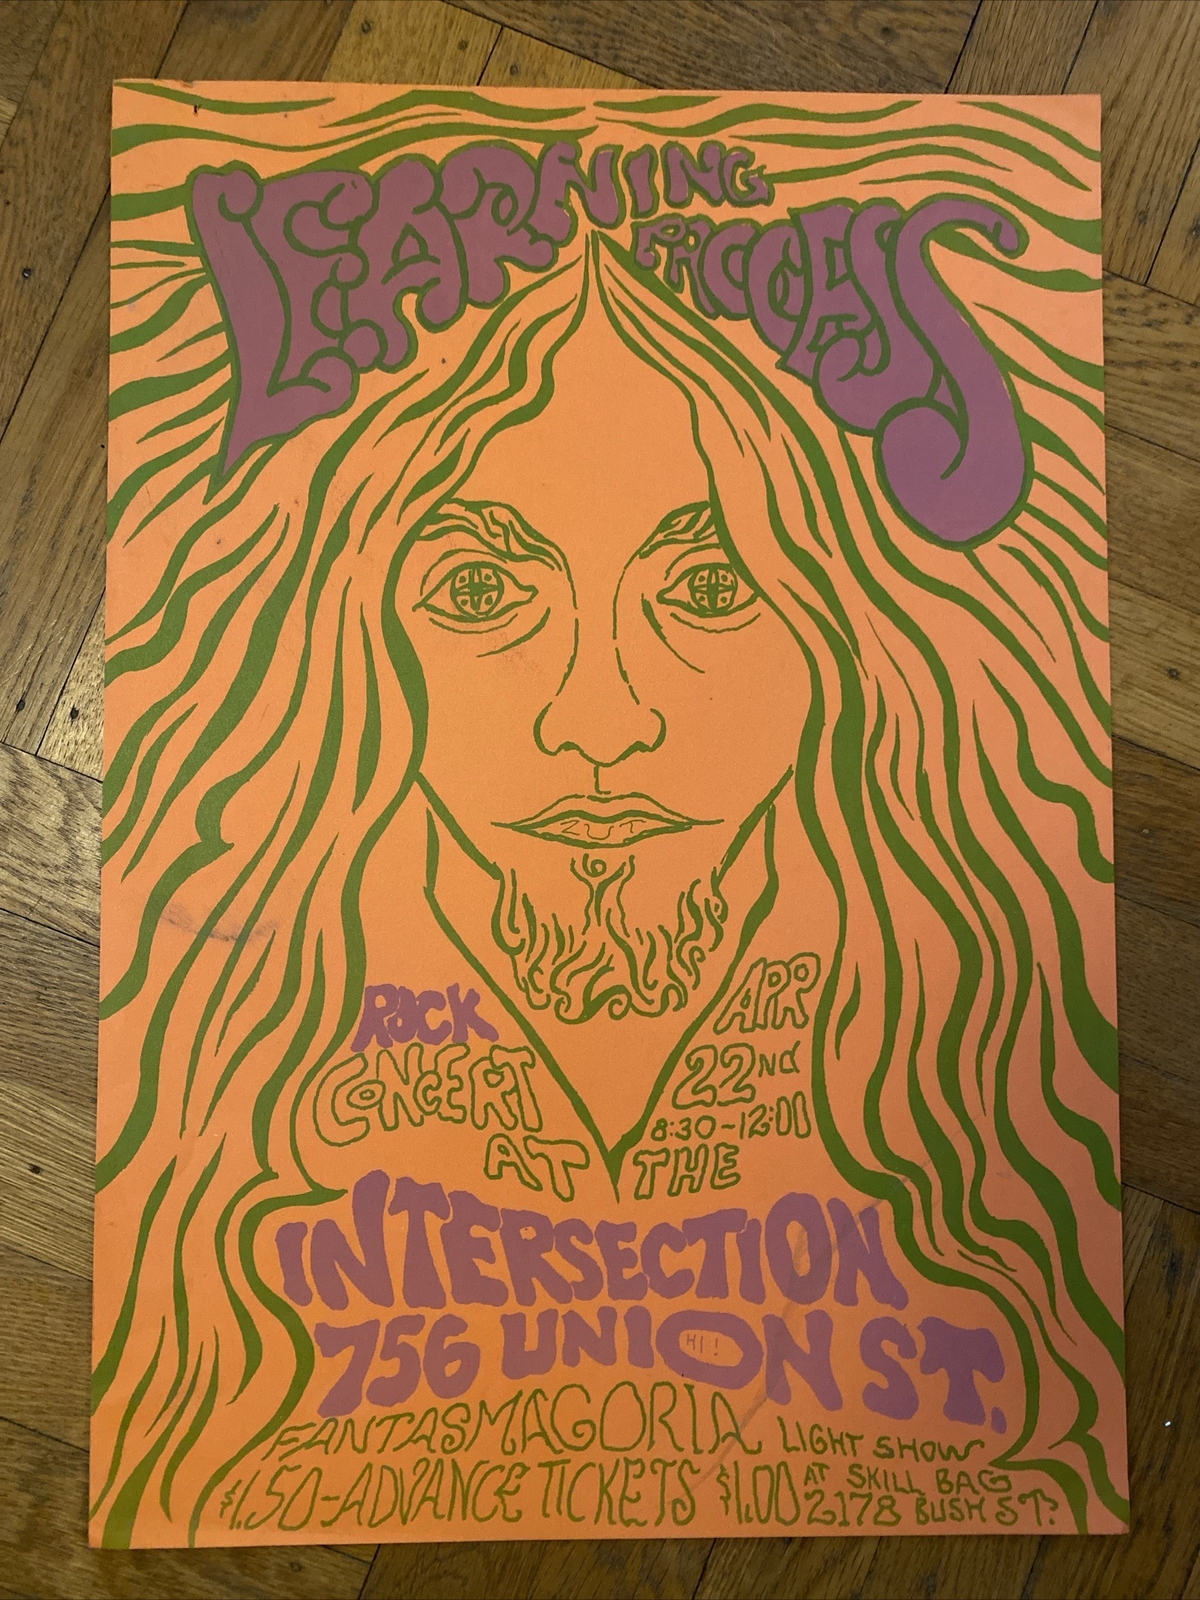 LEARNING
PROCESS
ZUT
ROCK
CONCERT
AT
APR
22ND
8:30-12:00
THE
INTERSECTION
756 UNION ST.
HI!
FANTASMAGORIA LIGHT SHOW
$1.50-ADVANCE TICKETS $1.00 AT SKILL BAG
2178 BUSH ST.